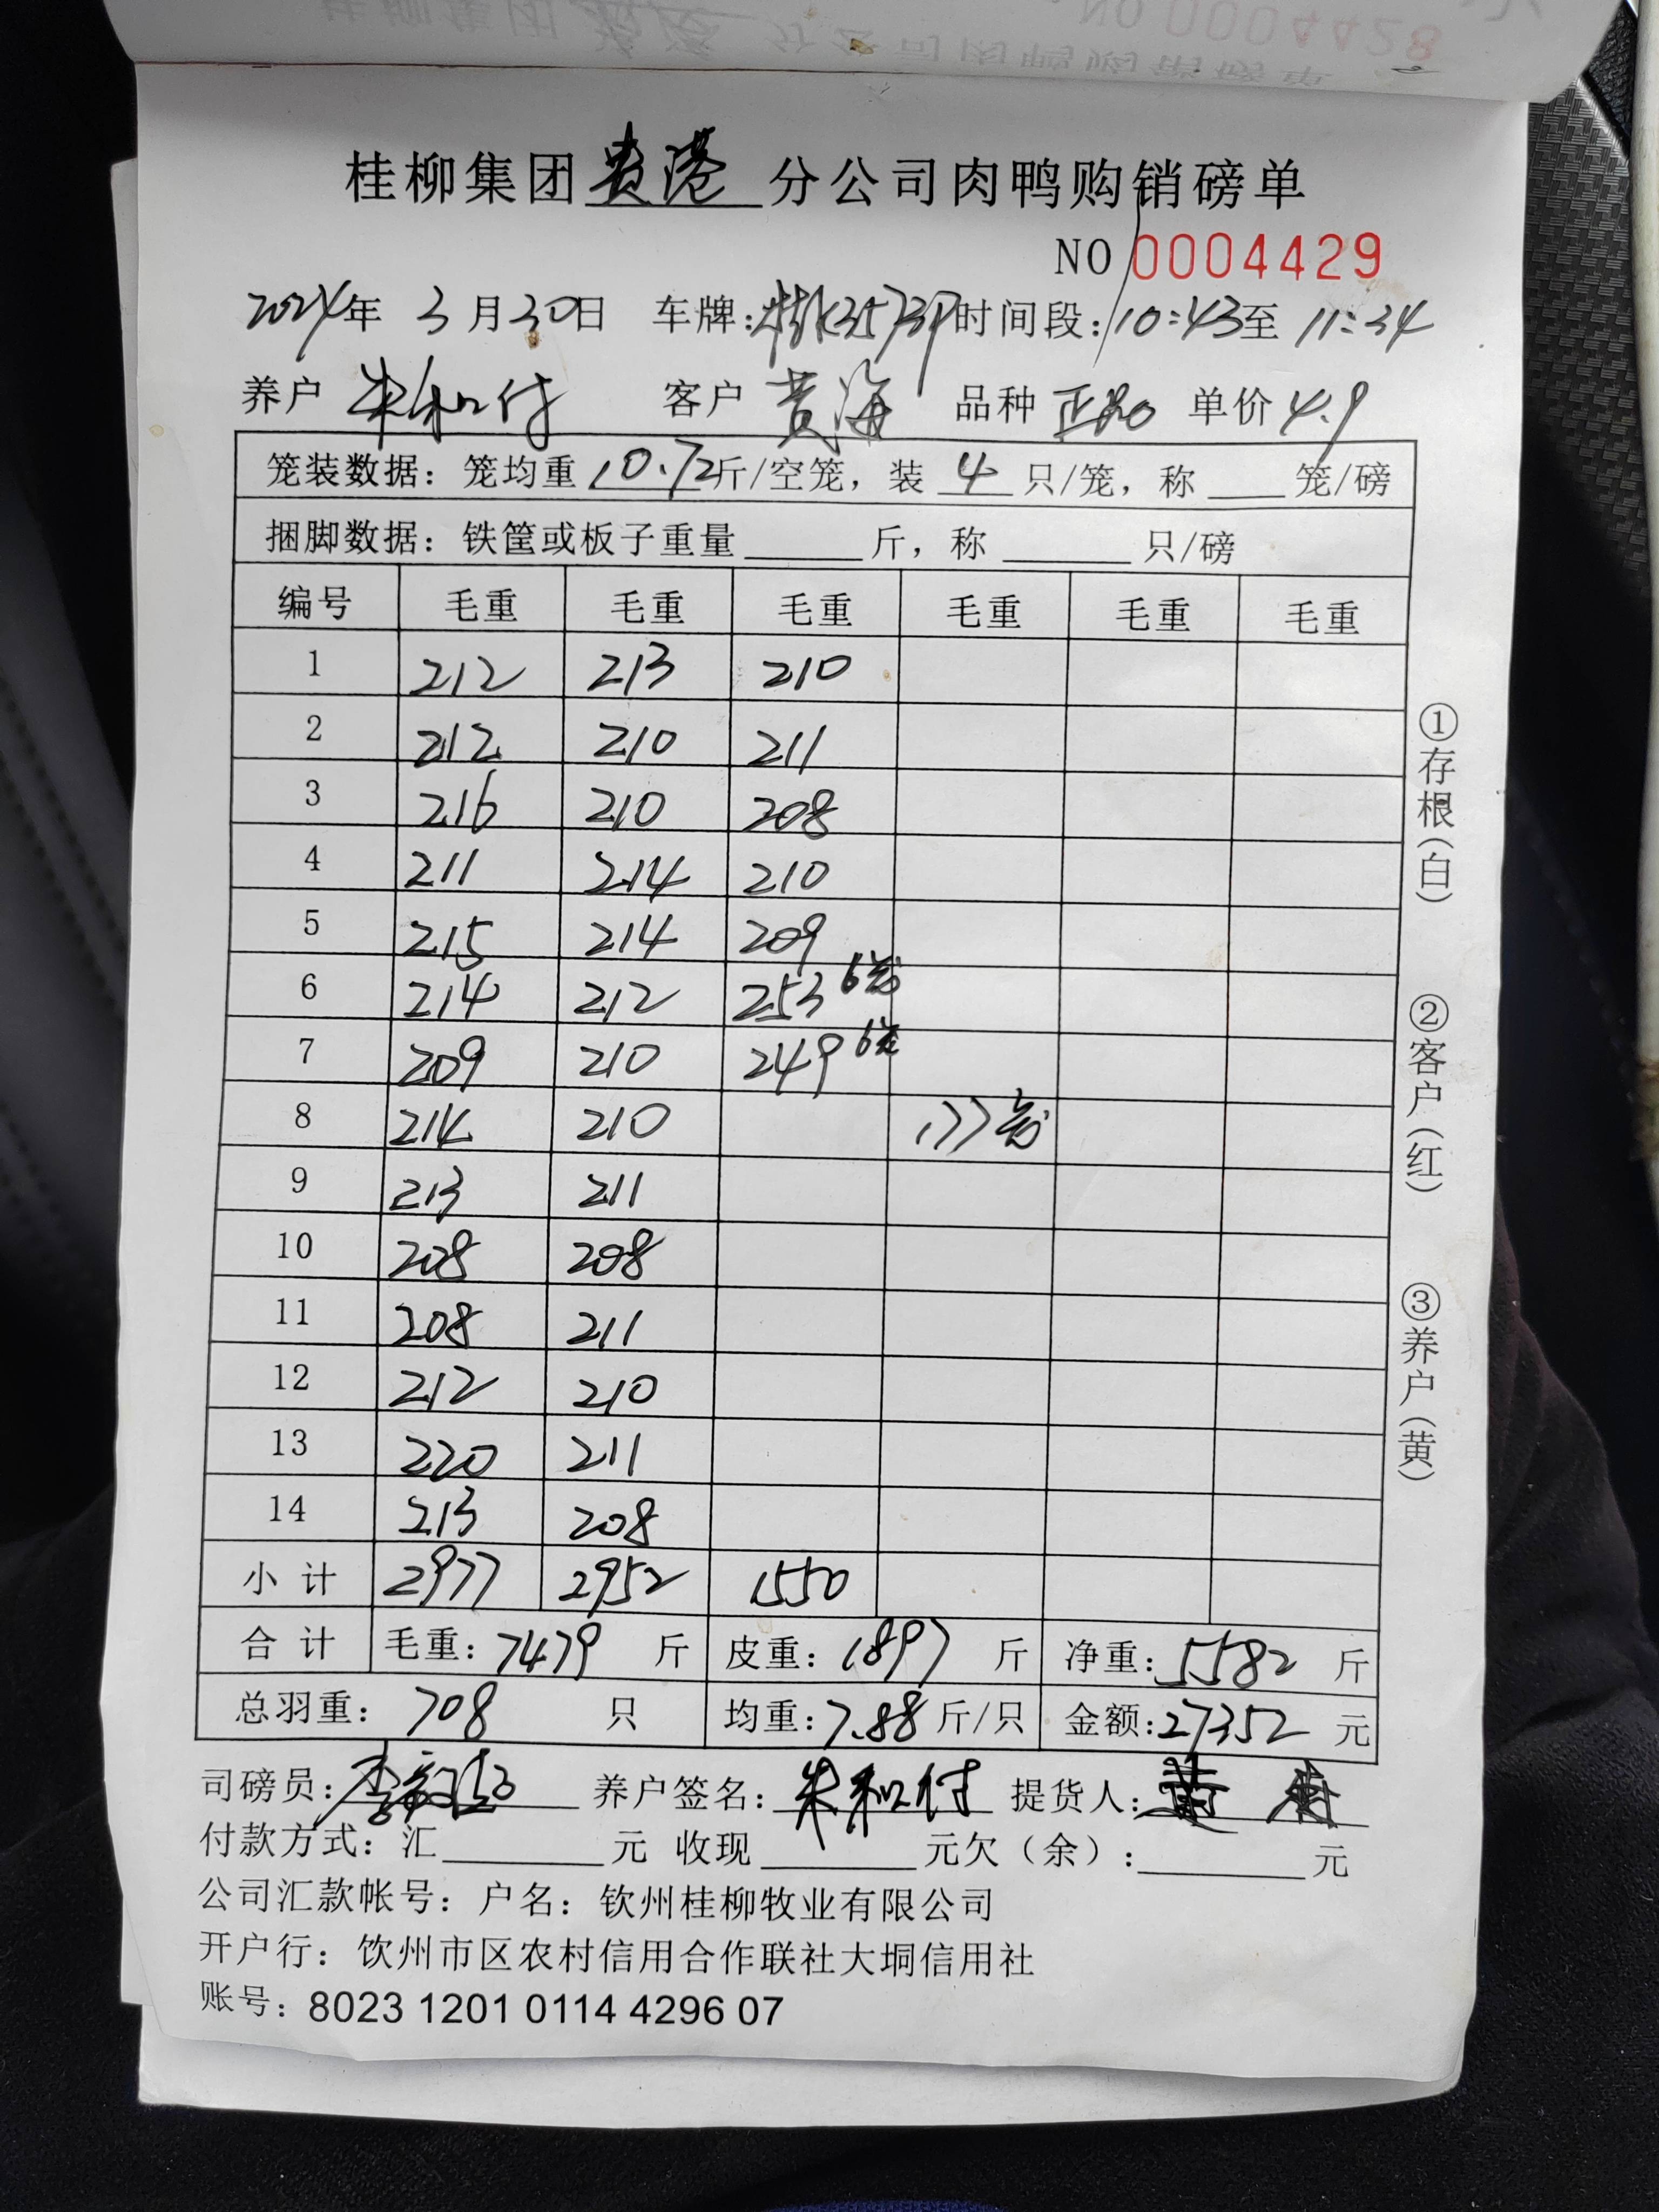 桂柳集团贵港分公司肉鸭购销磅单
NO 0004429
2024年 3月30日 车牌:桂K3573P 时间段:10:43至 11:34
养户 朱和付 客户 黄海 品种 正品 单价 4.9
笼装数据：笼均重 10.72斤/空笼，装 4 只/笼，称 笼/磅
捆脚数据：铁筐或板子重量 斤，称 只/磅
编号 毛重 毛重 毛重 毛重 毛重 毛重
1 212 213 210
2 212 210 211
3 216 210 208
4 211 214 210
5 215 214 209
6 214 212 253 6笼
7 209 210 249 6笼
8 214 210 177笼
9 213 211
10 208 208
11 208 211
12 212 210
13 220 211
14 213 208
小计 2977 2952 1550
合计 毛重：7479 斤 皮重：1897 斤 净重：5582 斤
总羽重：708 只 均重：7.88斤/只 金额：27352 元
司磅员：李 养户签名：朱和付 提货人：黄
付款方式：汇 元 收现 元欠（余）：元
公司汇款帐号：户名：钦州桂柳牧业有限公司
开户行：饮州市区农村信用合作联社大垌信用社
账号：8023 1201 0114 4296 07
①存根（白）
②客户（红）
③养户（黄）